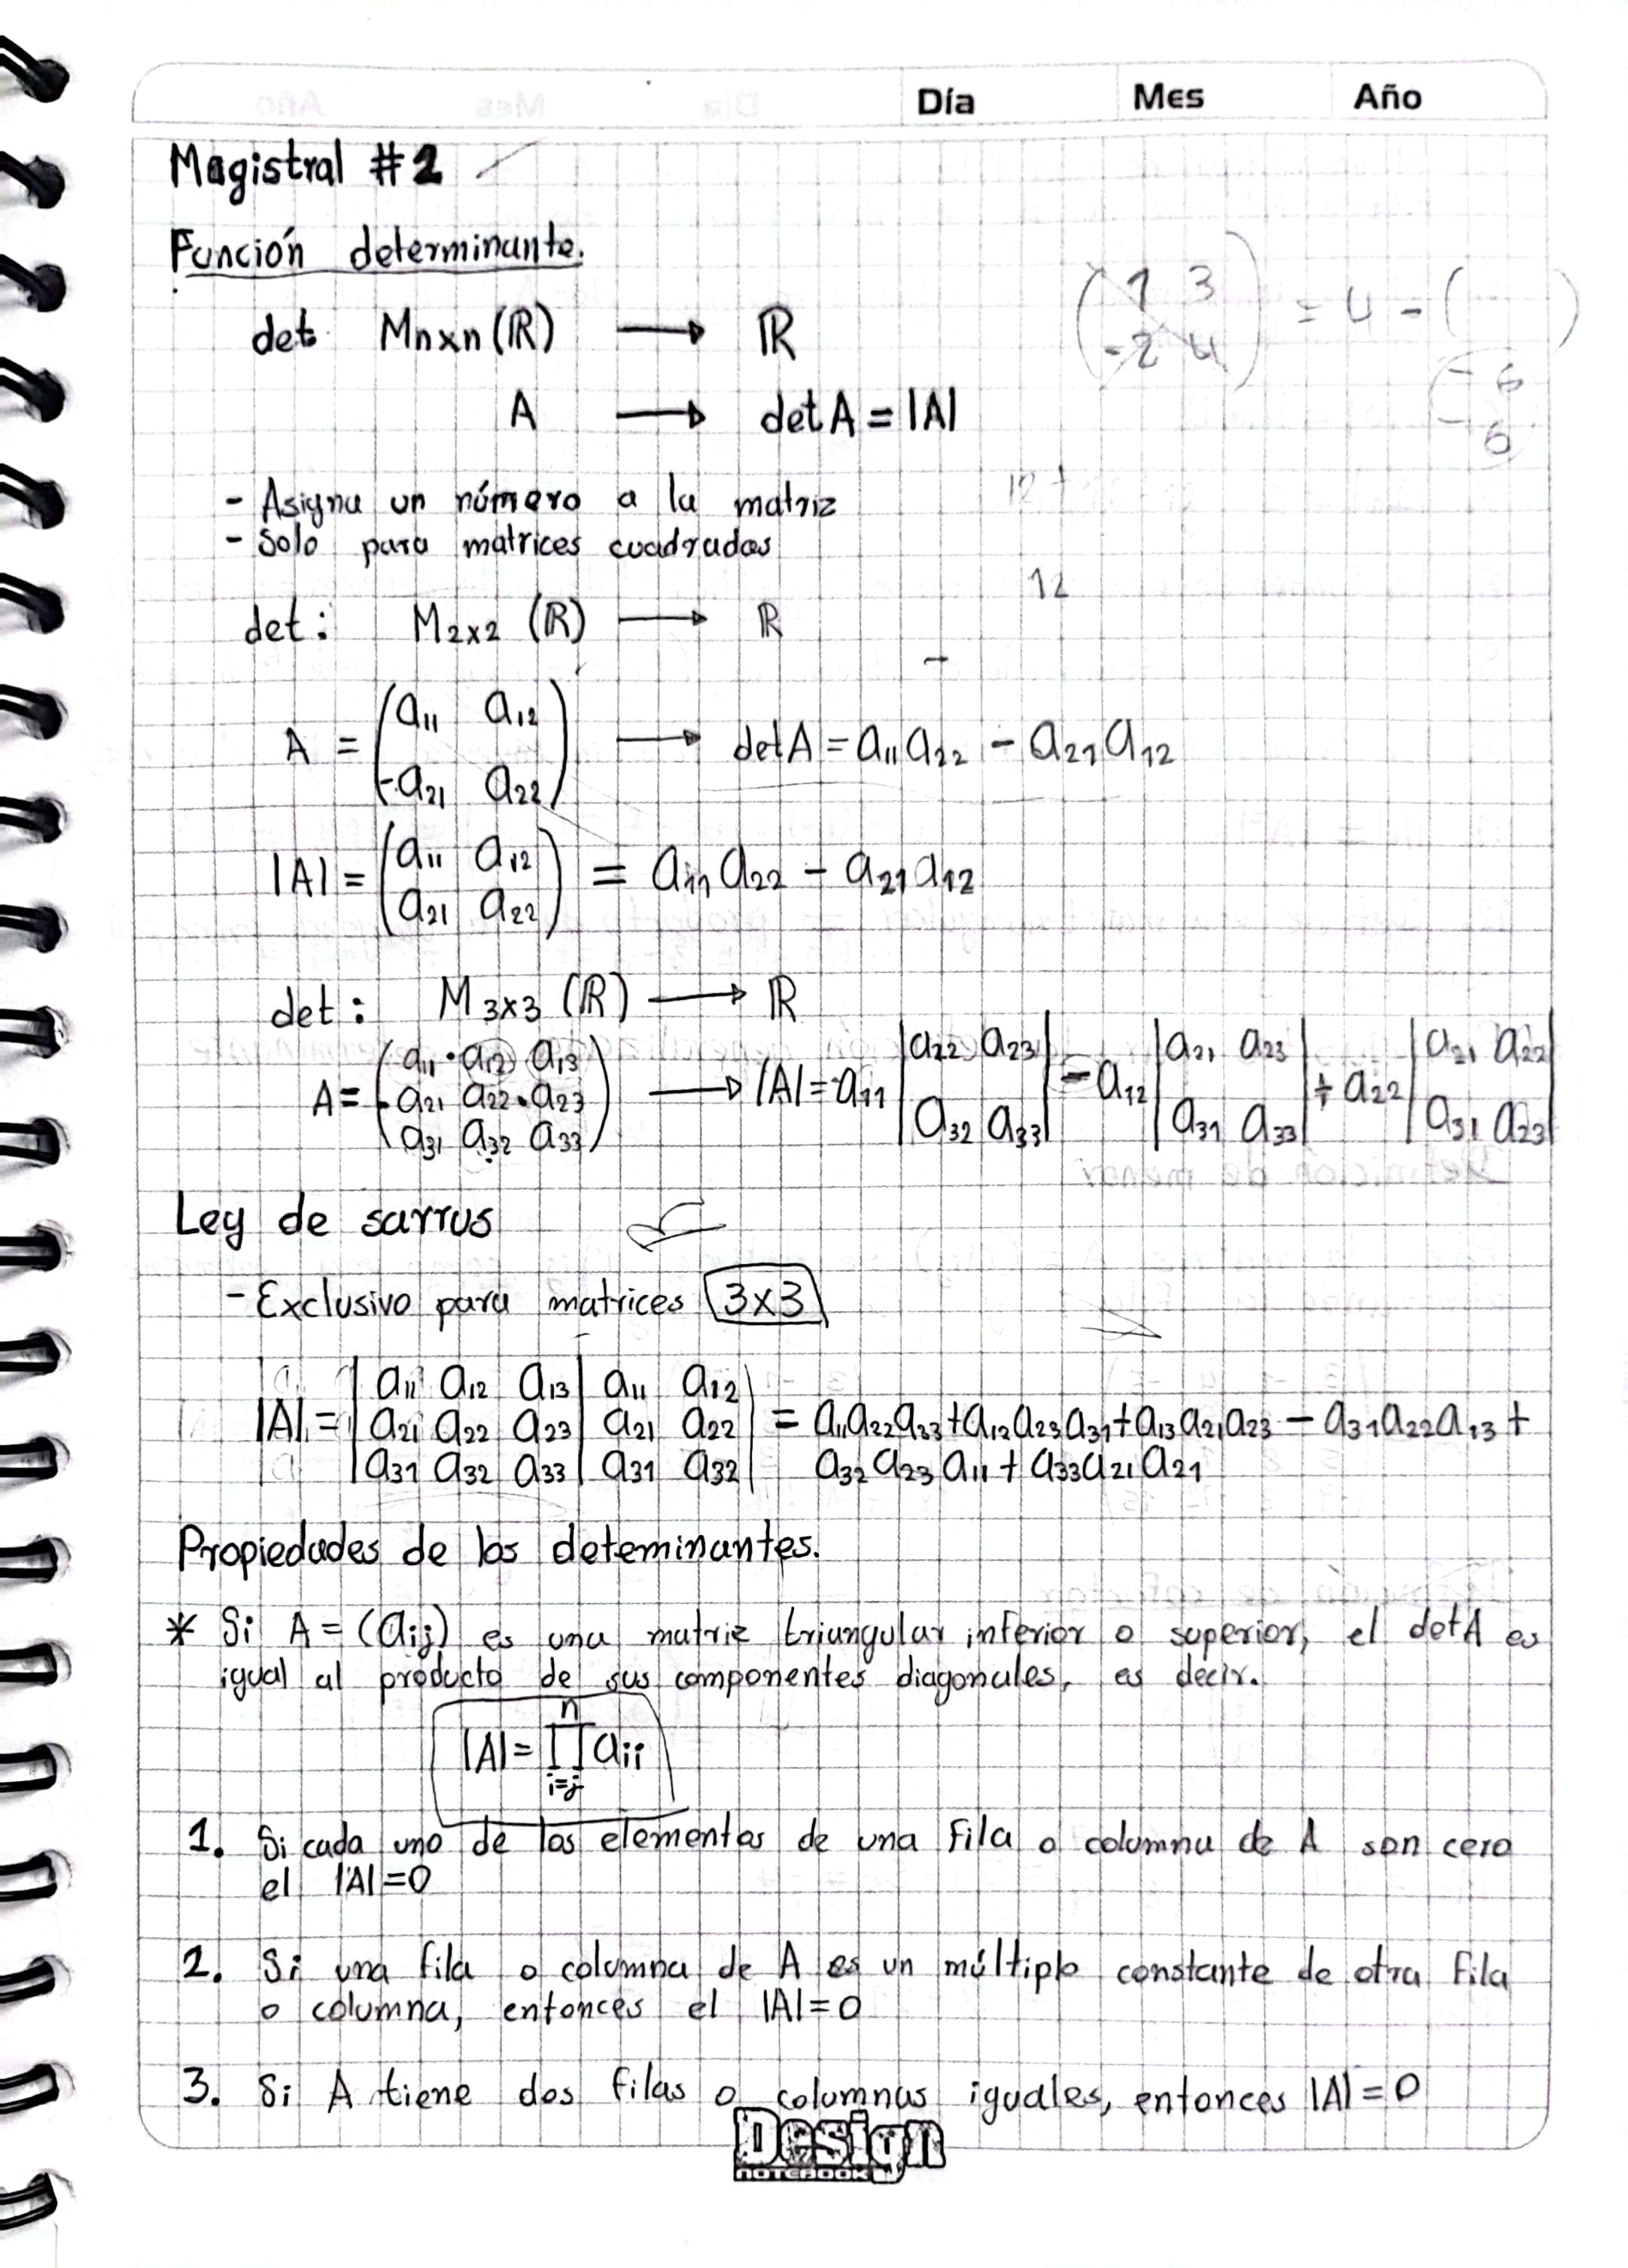 Día Mes Año
Magistral #2
Función determinante.
det Mnxn (ℝ) → ℝ
A → det A = |A|
(1 3
-2 4) = 4 - (
- 6
- 6
- Asigna un número a la matriz
- Solo para matrices cuadradas
12
det: M2x2 (ℝ) → ℝ
A = (a11 a12
-a21 a22) → det A = a11 a22 - a21 a12
|A| = (a11 a12
a21 a22) = a11 a22 - a21 a12
det: M3x3 (ℝ) → ℝ
A = (a11 a12 a13
a21 a22 a23
a31 a32 a33) → |A| = a11 |a22 a23
a32 a33| - a12 |a21 a23
a31 a33| + a22 |a21 a22
a31 a23|
Ley de sarrus
- Exclusivo para matrices 3x3
|A| = |a11 a12 a13| a11 a12
a21 a22 a23| a21 a22
a31 a32 a33| a31 a32| = a11a22a33+a12a23a31+a13a21a23 - a31a22a13 +
a32a23a11 + a33a21a21
Propiedades de los deteminantes.
* Si A = (aij) es una matriz triangular inferior o superior, el det A es
igual al producto de sus componentes diagonales, es decir.
n
|A| = ∏ aii
i=j
1. Si cada uno de los elementos de una Fila o columna de A son cero
el |A|=0
2. Si una fila o columna de A es un múltiplo constante de otra Fila
o columna, entonces el |A|=0
3. Si A tiene dos filas o columnas iguales, entonces |A|=0
Design
NOTEBOOK